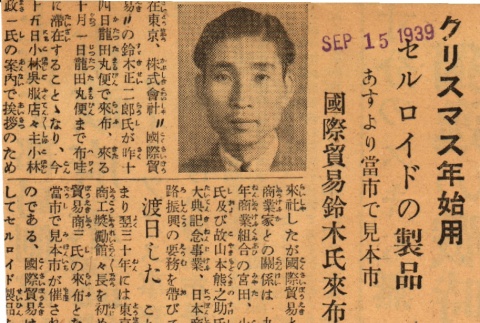 クリスマス年始用
セルロイドの製品
あすより當市で見本市
國際貿易鈴木氏來布
SEP 15 1939
在東京、株式會社〃國際貿
易〃の鈴木正二郎氏が昨十
四日龍田丸便で來布、來る
十月一日龍田丸便まで布哇
に滞在することゝなり、今
十五日小林呉服店々主小林
政一氏の案内で挨拶のため
來社したが國際貿易と
商業家との關係は、九
年商業組合の宮田、小
氏及び故山本熊之助氏
大典記念事業、日本商
路振興の要務を帶びて
渡日した こと
まり翌三十年には東京
商工奬勵館々長を初め
貿易商三 氏の來布とな
當市で見本市が催され
のである、國際貿易は
してセルロイド製品を